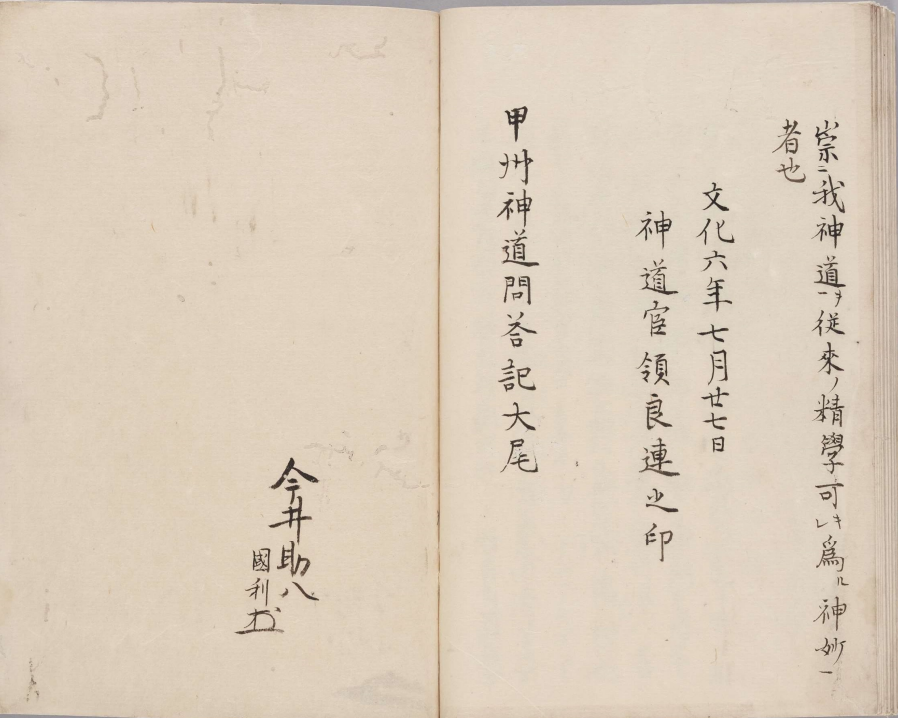 崇二我神道一ヲ従來ノ精學可レキ爲ル二神妙一
者也
文化六年七月廿七日
神道官領良連之印
甲州神道問答記大尾
今井助八
國利